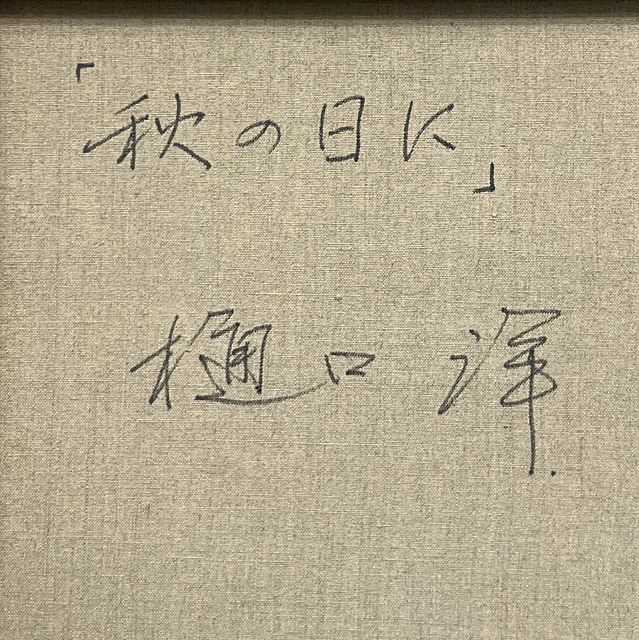 「秋の日に」
樋口 洋.